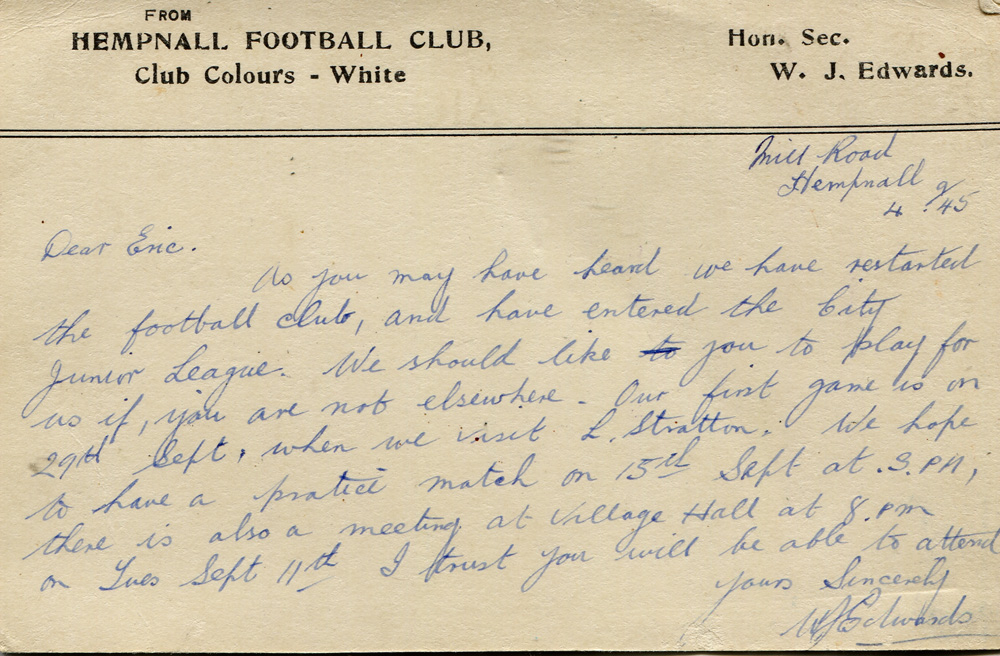 FROM
HEMPNALL FOOTBALL CLUB,
Club Colours - White
Hon. Sec.
W. J. Edwards.
Mill Road
Hempnall
4.9.45
Dear Eric.
As you may have heard we have restarted
the football club, and have entered the City
Junior League. We should like to you to play for
us if, you are not elsewhere - Our first game is on
29th Sept, when we visit L. Stratton. We hope
to have a pratice match on 15th Sept at .3.PM,
there is also a meeting at Village Hall at 8.pm
on Tues Sept 11th I trust you will be able to attend
yours Sincerely
WJEdwards